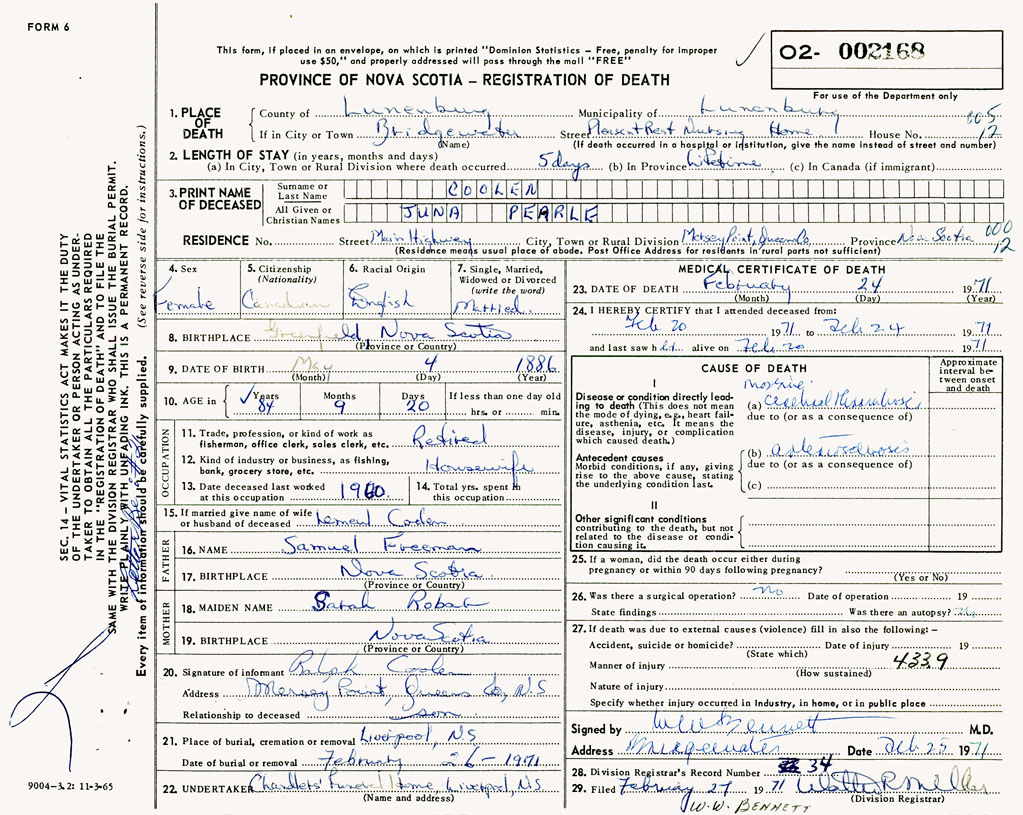 FORM 6
This form, if placed in an envelope, on which is printed "Dominion Statistics – Free, penalty for improper
use $50," and properly addressed will pass through the mail "FREE"
O2- 002168
PROVINCE OF NOVA SCOTIA – REGISTRATION OF DEATH
For use of the Department only
1. PLACE OF DEATH
County of Lunenburg Municipality of Lunenburg 005
If in City or Town Bridgewater Street Pleasant Rest Nursing Home House No. 12
(Name) (If death occurred in a hospital or institution, give the name instead of street and number)
2. LENGTH OF STAY (in years, months and days)
(a) In City, Town or Rural Division where death occurred 5 days (b) In Province Lifetime (c) In Canada (if immigrant)
3. PRINT NAME OF DECEASED
Surname or Last Name COOLEN
All Given or Christian Names JUNA PEARLE
RESIDENCE No. Street Main Highway City, Town or Rural Division Mersey Point, Queens Co. Province Nova Scotia 000
12
(Residence means usual place of abode. Post Office Address for residents in rural parts not sufficient)
4. Sex
Female
5. Citizenship
(Nationality)
Canadian
6. Racial Origin
English
7. Single, Married,
Widowed or Divorced
(write the word)
Married
8. BIRTHPLACE Greenfield Nova Scotia
(Province or Country)
9. DATE OF BIRTH May 4 1886
(Month) (Day) (Year)
10. AGE in
Years Months Days If less than one day old
84 9 20 hrs. or min.
OCCUPATION
11. Trade, profession, or kind of work as
fisherman, office clerk, sales clerk, etc. Retired
12. Kind of industry or business, as fishing,
bank, grocery store, etc. Housewife
13. Date deceased last worked
at this occupation 1960
14. Total yrs. spent in
this occupation
15. If married give name of wife
or husband of deceased Lemuel Coolen
FATHER
16. NAME Samuel Freeman
17. BIRTHPLACE Nova Scotia
(Province or Country)
MOTHER
18. MAIDEN NAME Sarah Robar
19. BIRTHPLACE Nova Scotia
(Province or Country)
20. Signature of informant Ralph Coolen
Address Mersey Point, Queens Co, N.S
Relationship to deceased son
21. Place of burial, cremation or removal Liverpool, N.S.
Date of burial or removal February 26 – 1971
22. UNDERTAKER Chandlers' Funeral Home, Liverpool, N.S.
(Name and address)
MEDICAL CERTIFICATE OF DEATH
23. DATE OF DEATH February 24 1971
(Month) (Day) (Year)
24. I HEREBY CERTIFY that I attended deceased from:
Feb 20 1971 to Feb 24 1971
and last saw h alive on Feb 20 1971
CAUSE OF DEATH
Approximate
interval be-
tween onset
and death
I
Disease or condition directly lead-
ing to death (This does not mean
the mode of dying, e.g., heart fail-
ure, asthenia, etc. It means the
disease, injury, or complication
which caused death.)
massive
(a) cerebral thrombosis
due to (or as a consequence of)
Antecedent causes
Morbid conditions, if any, giving
rise to the above cause, stating
the underlying condition last.
(b) arteriosclerosis
due to (or as a consequence of)
(c)
II
Other significant conditions
contributing to the death, but not
related to the disease or condi-
tion causing it.
25. If a woman, did the death occur either during
pregnancy or within 90 days following pregnancy?
(Yes or No)
26. Was there a surgical operation? no Date of operation 19
State findings Was there an autopsy? No
27. If death was due to external causes (violence) fill in also the following: –
Accident, suicide or homicide? Date of injury 19
(State which)
Manner of injury 4339
(How sustained)
Nature of injury
Specify whether injury occurred in industry, in home, or in public place
Signed by W W Bennett M.D.
Address Bridgewater Date Feb 25 1971
28. Division Registrar's Record Number 34
29. Filed February 27 1971 Walter R Miller
(Division Registrar)
W.W. BENNETT
SEC. 14 – VITAL STATISTICS ACT MAKES IT THE DUTY
OF THE UNDERTAKER OR PERSON ACTING AS UNDER-
TAKER TO OBTAIN ALL THE PARTICULARS REQUIRED
IN THE "REGISTRATION OF DEATH" AND TO FILE THE
SAME WITH THE DIVISION REGISTRAR WHO SHALL ISSUE THE BURIAL PERMIT.
WRITE PLAINLY WITH UNFADING INK. THIS IS A PERMANENT RECORD.
Every item of information should be carefully supplied. (See reverse side for instructions.)
9004–3.2: 11-3-65